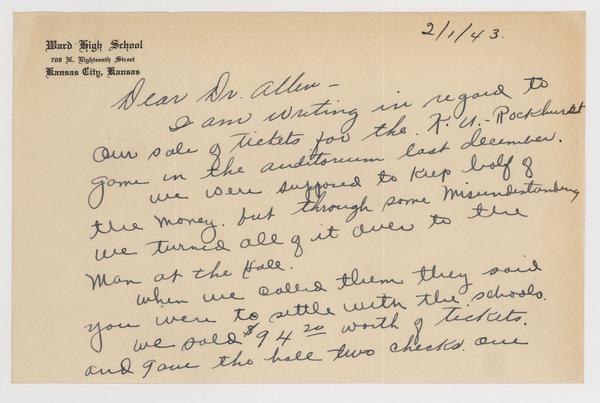 Ward High School
708 N. Eighteenth Street
Kansas City, Kansas
2/1/43.
Dear Dr. Allen -
I am writing in regard to
our sale of tickets for the K.U.-Rockhurst
game in the auditorium last december.
we were supposed to keep half of
the money. but through some misunderstanding
we turned all of it over to the
man at the Hall.
when we called them they said
you were to settle with the schools.
we sold $94 20 worth of tickets.
and gave the hall two checks. one